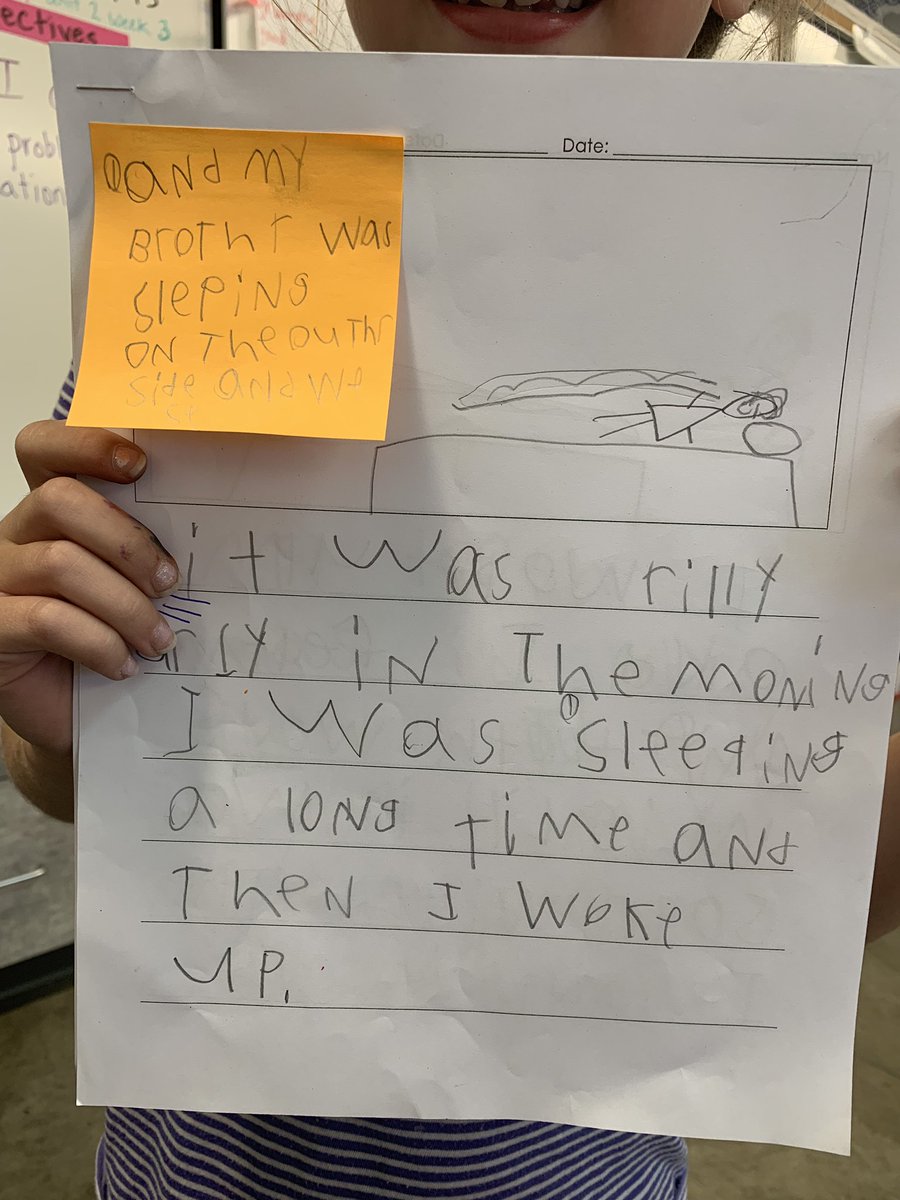 ectives
week 3
I
probl
ation
Date:
and MY
Brothr was
sleping
ON The outhr
side and we
it was rilly
arly in The moning
I was sleeping
a long time and
Then I woke
up.